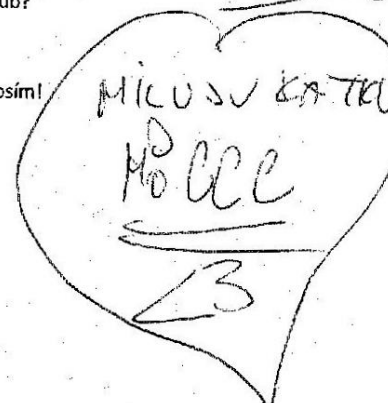 ub?
osím!
MILUJU KATKU
MOCCC
<3